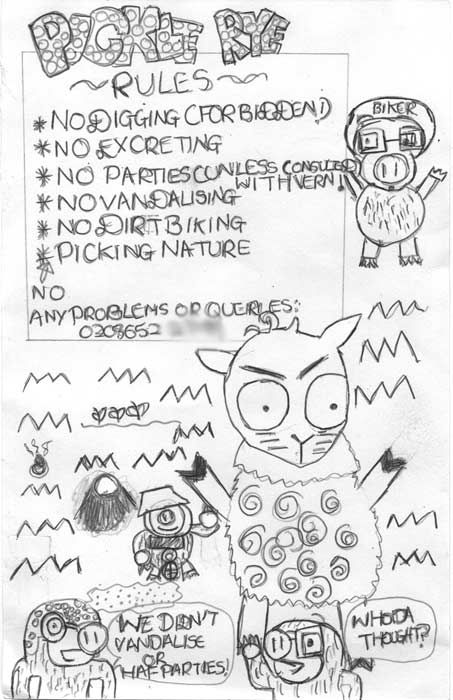 PICKLE RYE
~RULES~
* NO DIGGING (FORBIDDEN!)
* NO EXCRETING
* NO PARTIES (UNLESS CONSULTED
WITH VERN!
* NO VANDALISING
* NO DIRT BIKING
* PICKING NATURE
NO
ANY PROBLEMS OR QUERIES:
0208652
BIKER
WE DIDN'T
VANDALISE
OR
HAF PARTIES!
WHODA
THOUGHT?